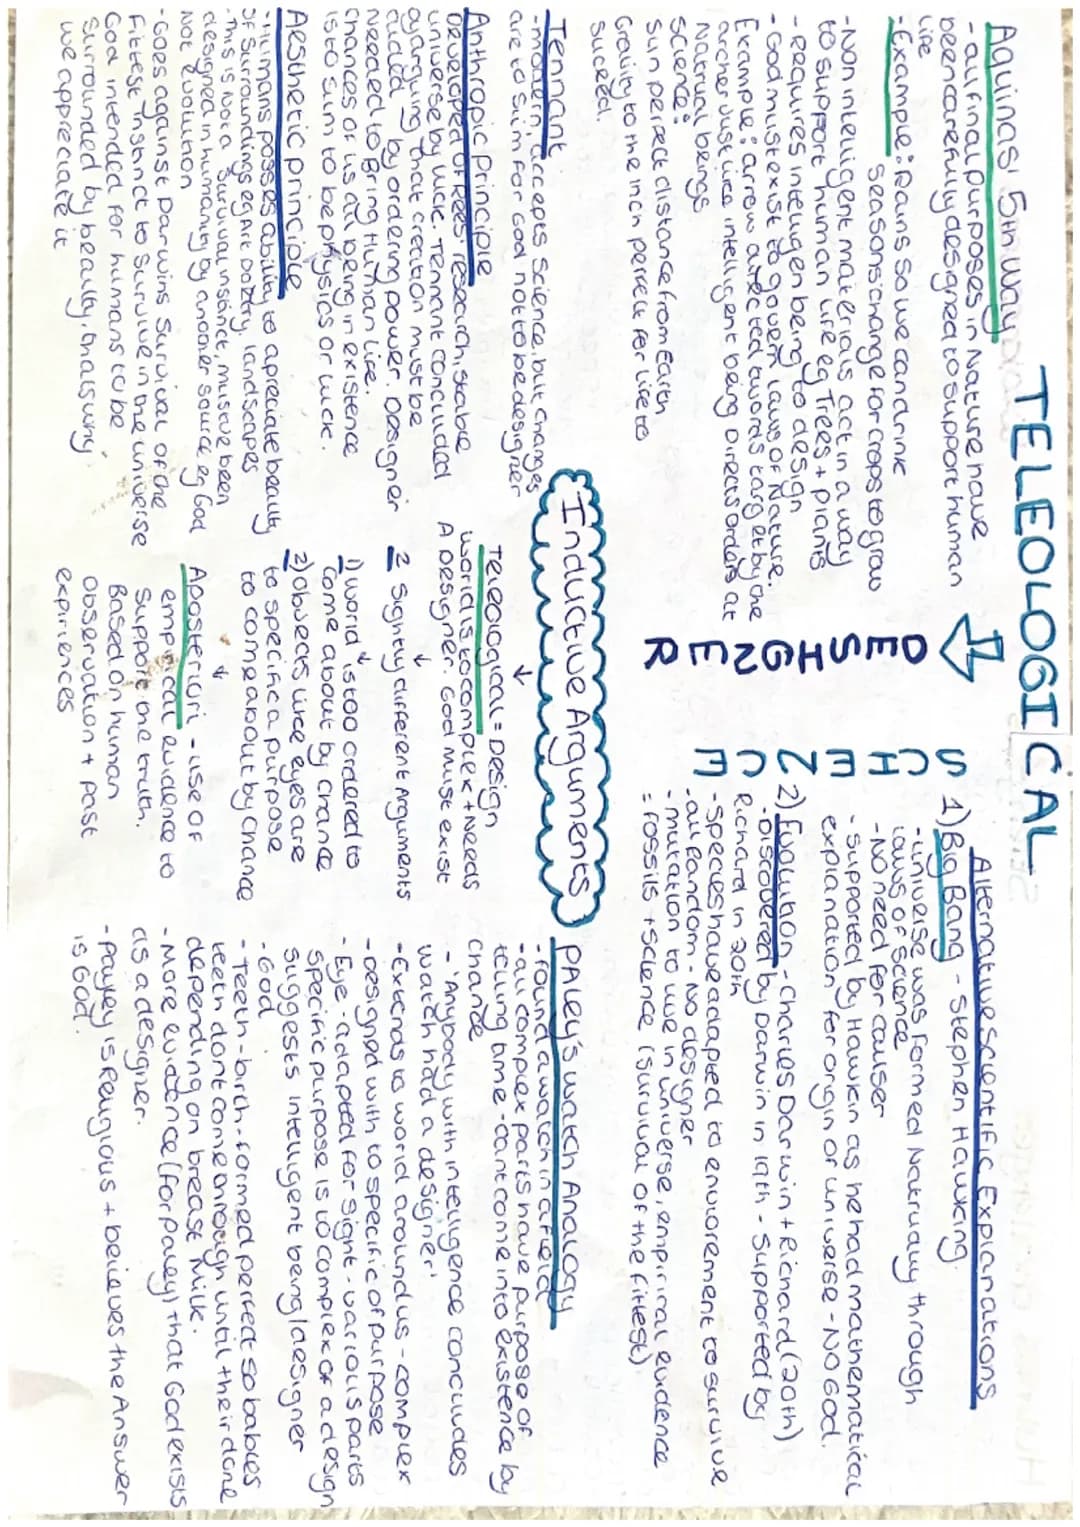 TELEOLOGICAL
Aquinas' 5th way
- all final purposes in nature have
been carefully designed to support human
life
- Example: Rains so we can drink
seasons change for crops to grow
- Non intelligent materials act in a way
to support human life eg Trees + plants
- requires intelligen being to design
- God must exist to govern laws of Nature.
Example: arrow directed twords target by the
archer Just like intelligent being Directs orders at
Natrual beings.
Science:
Sun perfect distance from Earth
Gravity to the inch perfect for life to
suceed.
DESIGNER
SCIENCE
Alternative scientific Explanations
1) Big Bang - Stephen Hawking.
- universe was formed Naturally through
laws of science
- NO need for causer
- supported by Hawkin as he had mathematical
explanation for origin of universe - NO God.
2) Evolution - Charles Darwin + Richard (20th)
- Discovered by Darwin in 19th - Supported by
Richard in 20th
- Species have adapted to enviorement to survive
- all Random - No designer
- mutation to live in universe, empirical evidence
= fossils + science (survival of the fittest)
Inductive Arguments
Tennant
- modern, accepts science, but changes
are to slim for God not to be designer
Anthropic principle
Developed of Rees' research, stable
universe by luck. Tennant concluded
arguing that creation must be
guided by ordering power. Designer
needed to Bring Human life.
Chances of us all being in existence
is to slim to be physics or luck.
Aesthetic principle
- Humans posses ability to apreciate beauty
of surroundings eg Art, poetry, landscapes
- This is Not a survival instinct, mustve been
designed in humanity by another source eg God
Not Evolution
- Goes against Darwins Survival of the
Fittest instinct to survive in the universe
God intended for humans to be
surrounded by beauty, thats why
we appreciate it
Teleological = Design
world is to complex + Needs
A Designer. God must exist
2 Sightly different Arguments
1) world is too ordered to
Come about by chance
2) Objects like eyes are
to specific a purpose
to come about by chance
Aposteriori - use of
empirical evidence to
support the truth.
Based on human
observation + past
expriences
PALEY'S watch Analogy
- found a watch in a field
- all complex parts have purpose of
telling time - cant come into existence by
chance
- 'Anybody with intelligence concludes
watch had a designer'
- Extends to world around us - complex
- Designed with to specific of purpose
- Eye - adapted for sight - various parts
specific purpose is to complex of a design
suggests intelligent being/designer
- God
- Teeth - birth - formed perfect so babies
teeth dont come through until their done
depending on breast milk.
- More evidence (for paley) that God exists
as a designer.
- Payley is Religious + believes the Answer
is God.